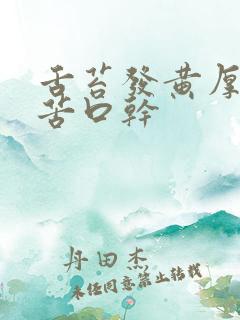 舌苔發黃厚
苦口幹
丹田杰
未经同意禁止转载